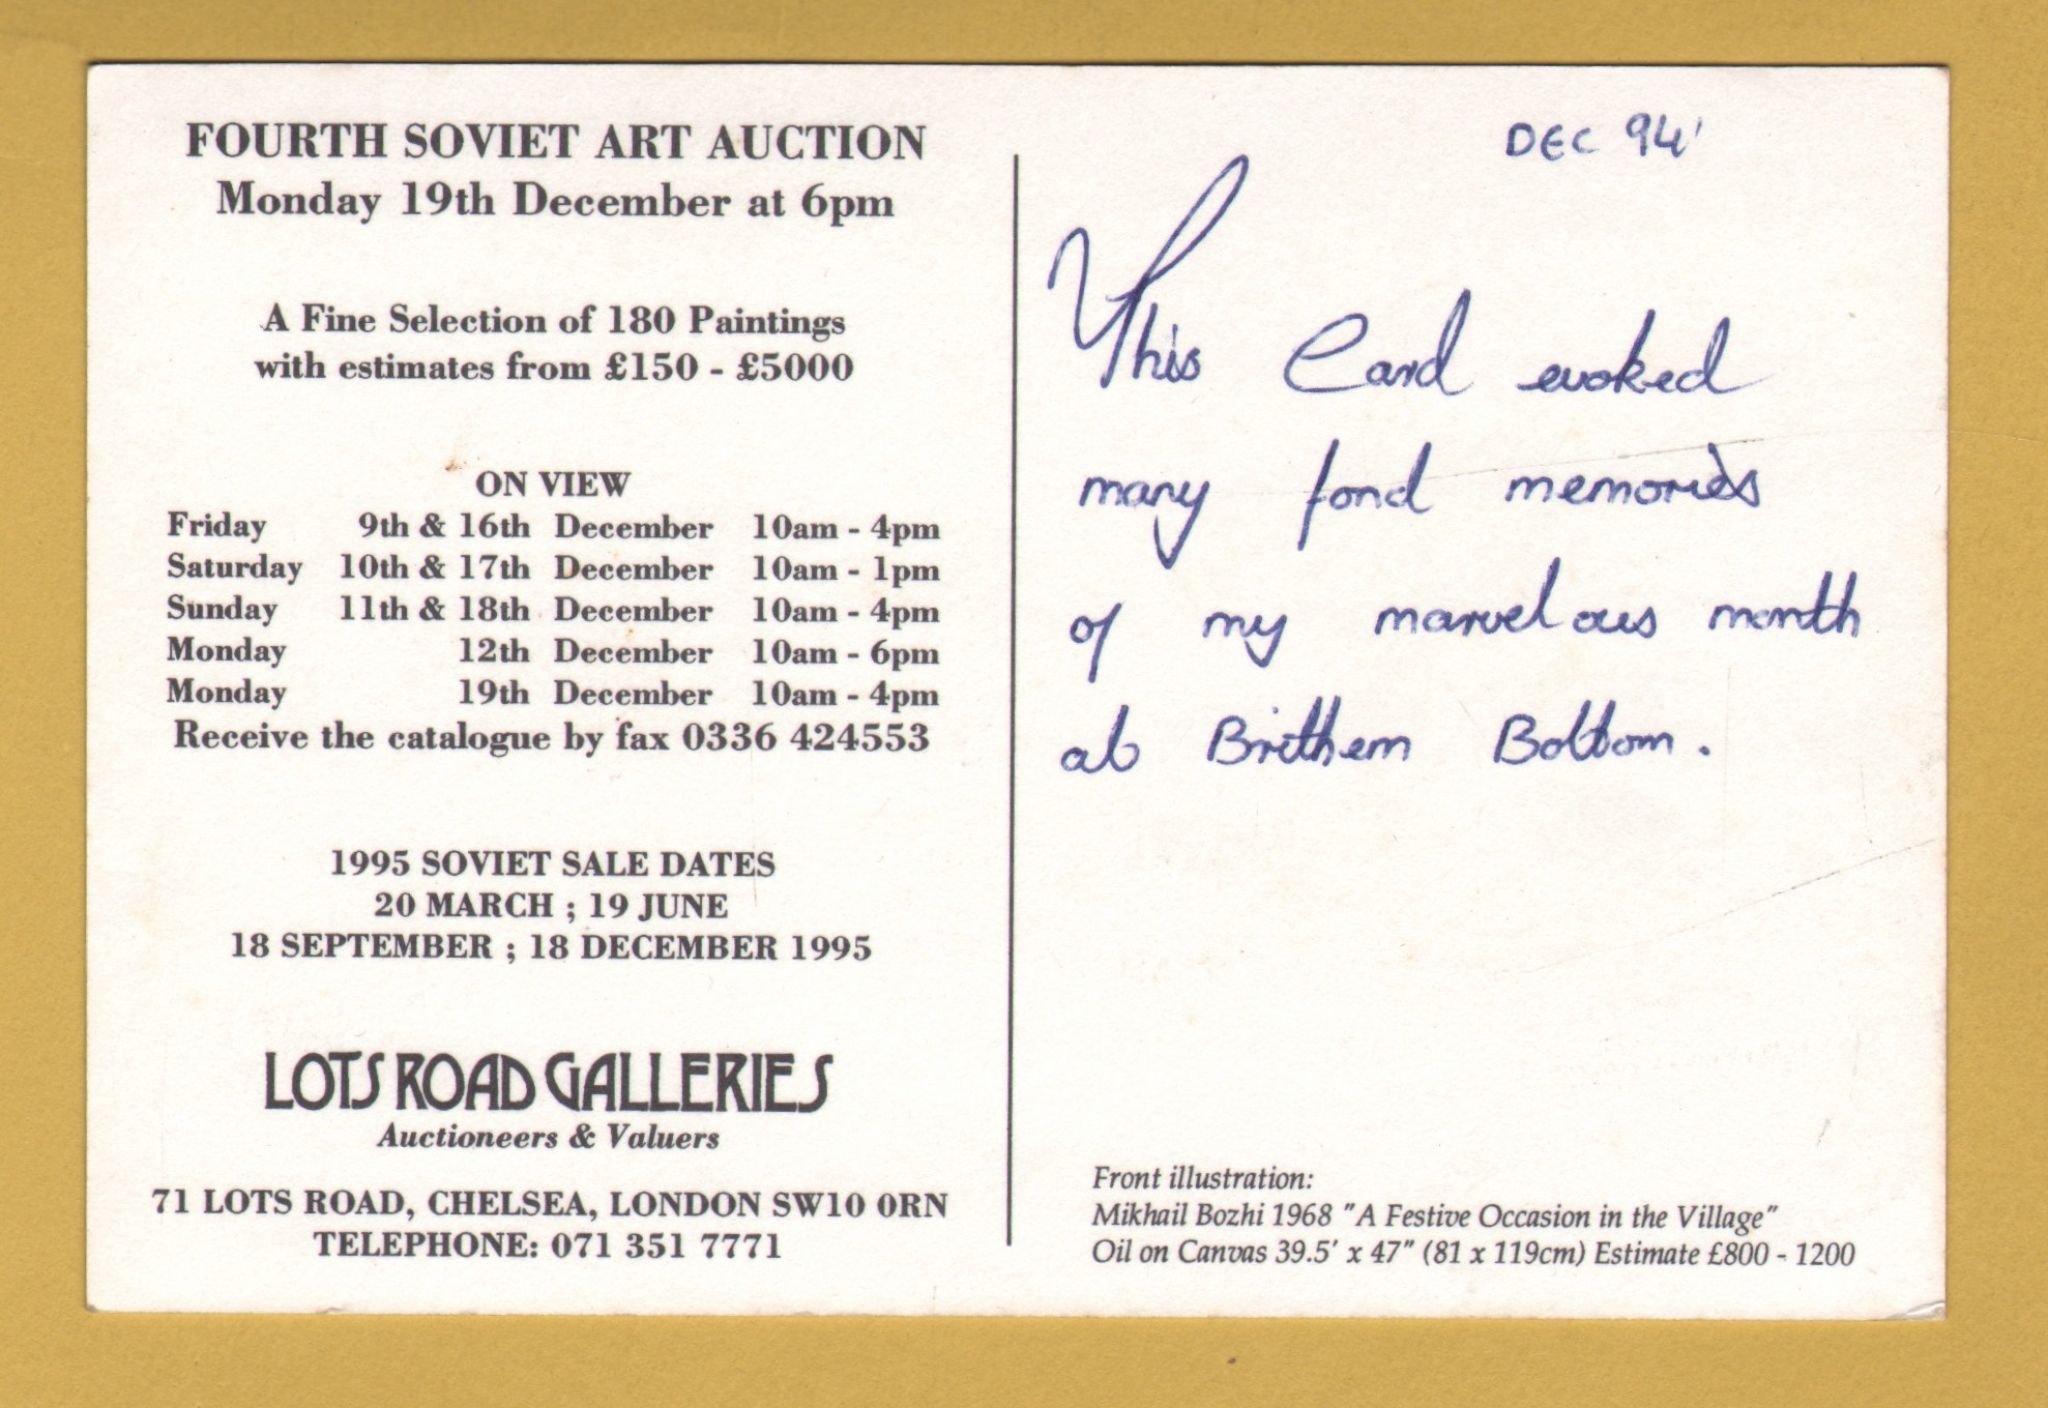 FOURTH SOVIET ART AUCTION
Monday 19th December at 6pm
A Fine Selection of 180 Paintings
with estimates from £150 - £5000
ON VIEW
Friday 9th & 16th December 10am - 4pm
Saturday 10th & 17th December 10am - 1pm
Sunday 11th & 18th December 10am - 4pm
Monday 12th December 10am - 6pm
Monday 19th December 10am - 4pm
Receive the catalogue by fax 0336 424553
1995 SOVIET SALE DATES
20 MARCH ; 19 JUNE
18 SEPTEMBER ; 18 DECEMBER 1995
LOTS ROAD GALLERIES
Auctioneers & Valuers
71 LOTS ROAD, CHELSEA, LONDON SW10 0RN
TELEPHONE: 071 351 7771
DEC 94'
This Card evoked
many fond memories
of my marvelous month
at Brithem Bottom.
Front illustration:
Mikhail Bozhi 1968 "A Festive Occasion in the Village"
Oil on Canvas 39.5' x 47" (81 x 119cm) Estimate £800 - 1200